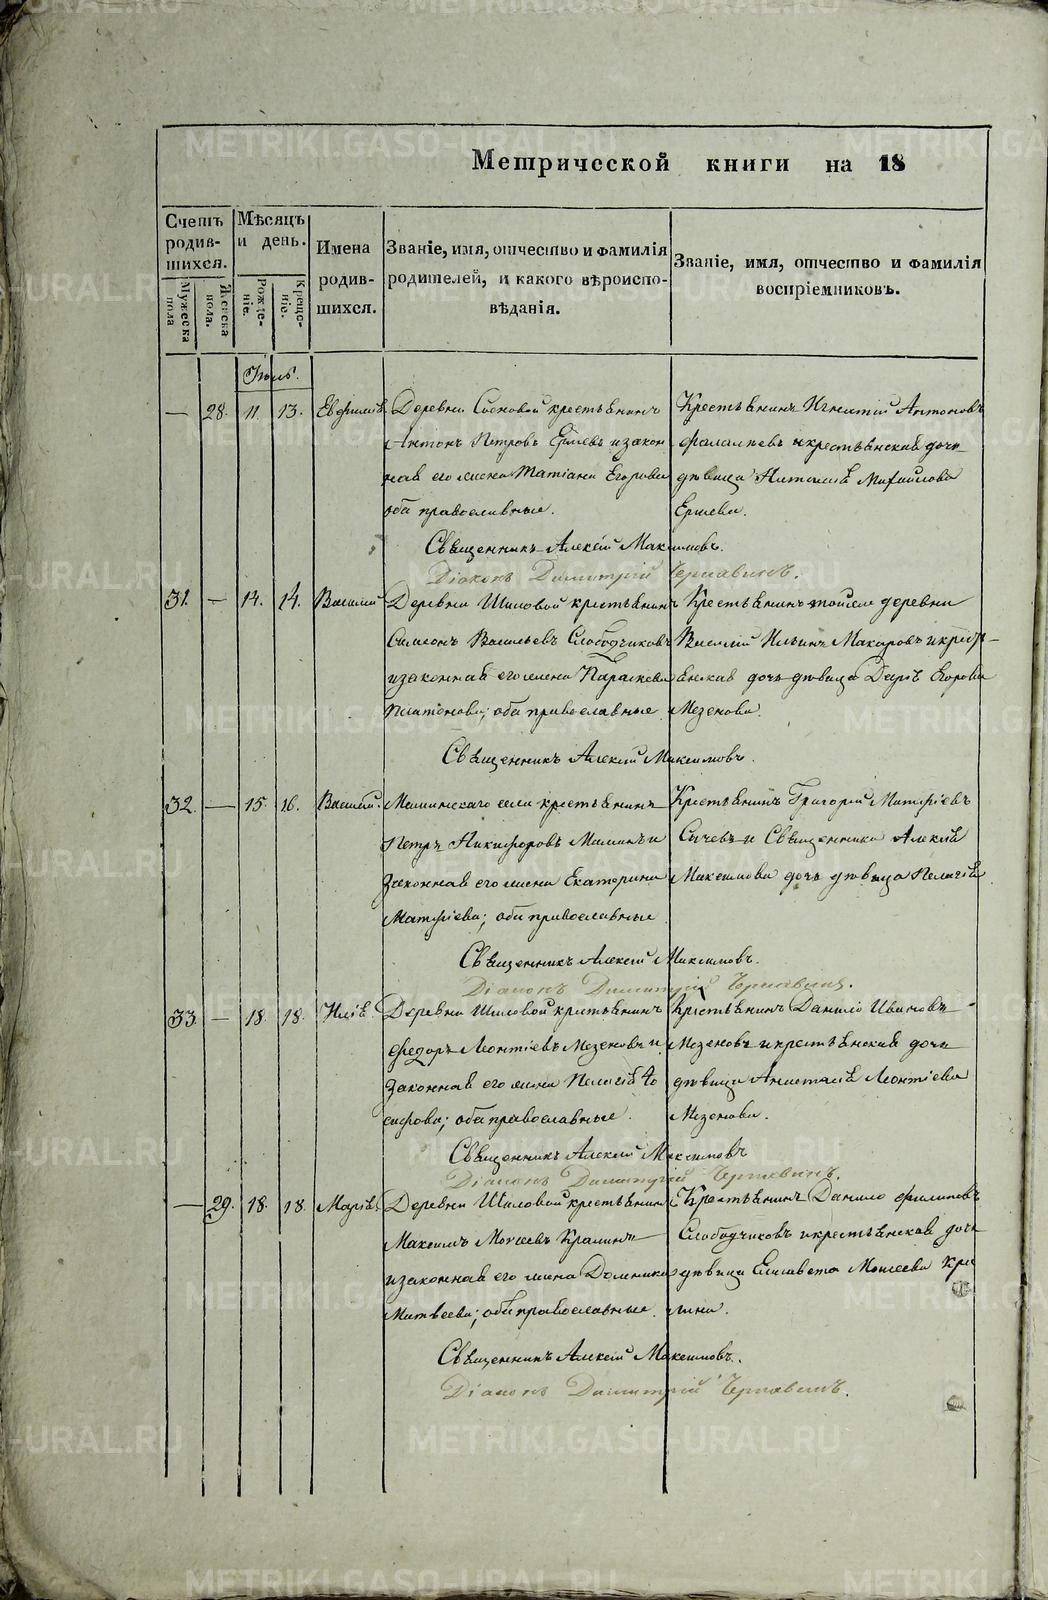 Метрической книги на 18
Счетъ родив-шихся.
Мужеска пола
Женска пола.
Мѣсяцъ и день.
Рожде-ніе.
Креще-ніе.
Имена родив-шихся.
Званіе, имя, отчество и фамилія
родителей, и какого вѣроиспо-
вѣданія.
Званіе, имя, отчество и фамилія
воспріемниковъ.
Іюль.
— 28. 11. 13. Евфимія. Деревни Сосновой крестьянинъ
Антонъ Петровъ Ершевъ и закон
ная его жена Татіана Егорова
оба православные.
Крестьянинъ Игнатій Антоновъ
и крестьянская дочь
дѣвица Наталія Михайлова
Ершева.
Священникъ Алексій Максимовъ.
Діаконъ Димитрій Чернавинъ.
31. — 14. 14. Василій Деревни Шиловой крестьянинъ
Симеонъ Васильевъ Слободчиковъ
и законная его жена Параскева
Платонова; оба православные
Крестьянинъ тойже деревни
Василій Ильинъ Макаровъ и крестья-
нская дочь дѣвица Дарія Егорова
Мезенова.
Священникъ Алексій Максимовъ.
32. — 15 16. Василій. Маминскаго села крестьянинъ
Петръ Никифоровъ Маминъ и
законная его жена Екатерина
Матфіева; оба православные
Крестьянинъ Григорій Матфіевъ
Сычевъ и Священника Алексія
Максимова дочь дѣвица Пелагія
Священникъ Алексій Максимовъ.
Діаконъ Димитрій Чернавинъ.
33. — 18. 18. Илія. Деревни Шиловой крестьянинъ
Федоръ Леонтіевъ Мезеновъ и
законная его жена Пелагія Іо
сифова; оба православные.
Крестьянинъ Данило Ивановъ
Мезеновъ и крестьянская дочь
дѣвица Анастасія Леонтіева
Мезенова.
Священникъ Алексій Максимовъ
Діаконъ Димитрій Чернавинъ.
— 29. 18. 18. Марія. Деревни Шиловой крестьянинъ
Максимъ Моисеевъ Кралинъ
и законная его жена Домника
Матвеева; оба православные.
Крестьянинъ Данило Филиповъ
Слободчиковъ и крестьянская дочь
дѣвица Елисавета Моисеева Кра
лина.
Священникъ Алексій Максимовъ.
Діаконъ Димитрій Чернавинъ.
METRIKI.GASO-URAL.RU